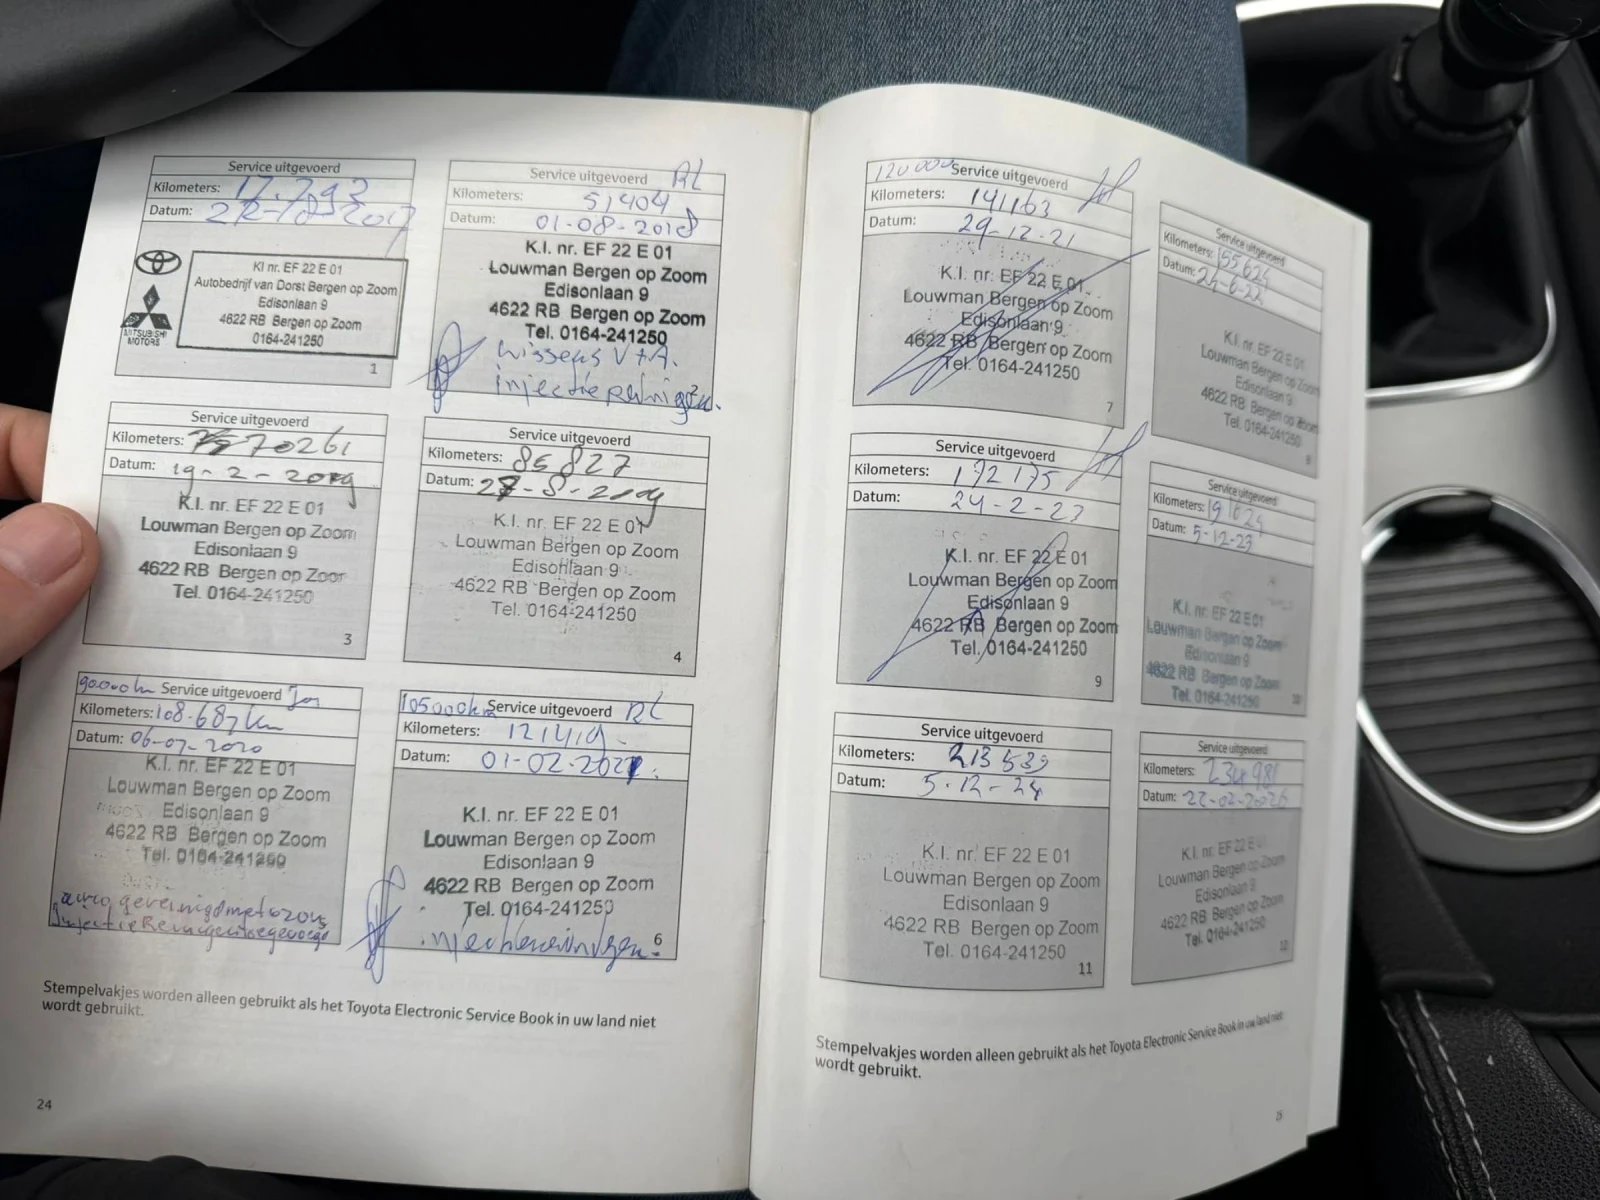 Service uitgevoerd
Kilometers: 17.293
Datum: 2017
MITSUBISHI
MOTORS
KI nr. EF 22 E 01
Autobedrijf van Dorst Bergen op Zoom
Edisonlaan 9
4622 RB Bergen op Zoom
0164-241250
1
Service uitgevoerd RL
Kilometers: 51404
Datum: 01-08-2018
K.I. nr. EF 22 E 01
Louwman Bergen op Zoom
Edisonlaan 9
4622 RB Bergen op Zoom
Tel. 0164-241250
wissers V+A.
injectie
Service uitgevoerd
Kilometers: 70261
Datum: 19-2-2019
K.I. nr. EF 22 E 01
Louwman Bergen op Zoom
Edisonlaan 9
4622 RB Bergen op Zoom
Tel. 0164-241250
3
Service uitgevoerd
Kilometers: 85827
Datum: 27-8-2019
K.I. nr. EF 22 E 01
Louwman Bergen op Zoom
Edisonlaan 9
4622 RB Bergen op Zoom
Tel. 0164-241250
4
90.000km Service uitgevoerd
Kilometers: 108.687km
Datum: 06-07-2020
K.I. nr. EF 22 E 01
Louwman Bergen op Zoom
Edisonlaan 9
4622 RB Bergen op Zoom
Tel. 0164-241250
airco gereinigd met ozon
105000km Service uitgevoerd RL
Kilometers: 121419.
Datum: 01-02-2021.
K.I. nr. EF 22 E 01
Louwman Bergen op Zoom
Edisonlaan 9
4622 RB Bergen op Zoom
Tel. 0164-241250
6
Stempelvakjes worden alleen gebruikt als het Toyota Electronic Service Book in uw land niet
wordt gebruikt.
24
120000 Service uitgevoerd
Kilometers: 141163
Datum: 29-12-21
K.I. nr. EF 22 E 01
Louwman Bergen op Zoom
Edisonlaan 9
4622 RB Bergen op Zoom
Tel. 0164-241250
7
Service uitgevoerd
Kilometers: 155624
Datum: 24-6-22
K.I. nr. EF 22 E 01
Louwman Bergen op Zoom
Edisonlaan 9
4622 RB Bergen op Zoom
Tel. 0164-241250
8
Service uitgevoerd
Kilometers: 172175
Datum: 24-2-23
K.I. nr. EF 22 E 01
Louwman Bergen op Zoom
Edisonlaan 9
4622 RB Bergen op Zoom
Tel. 0164-241250
9
Service uitgevoerd
Kilometers: 191624
Datum: 5-12-23
K.I. nr. EF 22 E 01
Louwman Bergen op Zoom
Edisonlaan 9
4622 RB Bergen op Zoom
Tel. 0164-241250
10
Service uitgevoerd
Kilometers: 213539
Datum: 5-12-24
K.I. nr. EF 22 E 01
Louwman Bergen op Zoom
Edisonlaan 9
4622 RB Bergen op Zoom
Tel. 0164-241250
11
Service uitgevoerd
Kilometers: 234981
Datum: 22-02-2026
K.I. nr. EF 22 E 01
Louwman Bergen op Zoom
Edisonlaan 9
4622 RB Bergen op Zoom
Tel. 0164-241250
12
Stempelvakjes worden alleen gebruikt als het Toyota Electronic Service Book in uw land niet
wordt gebruikt.
25